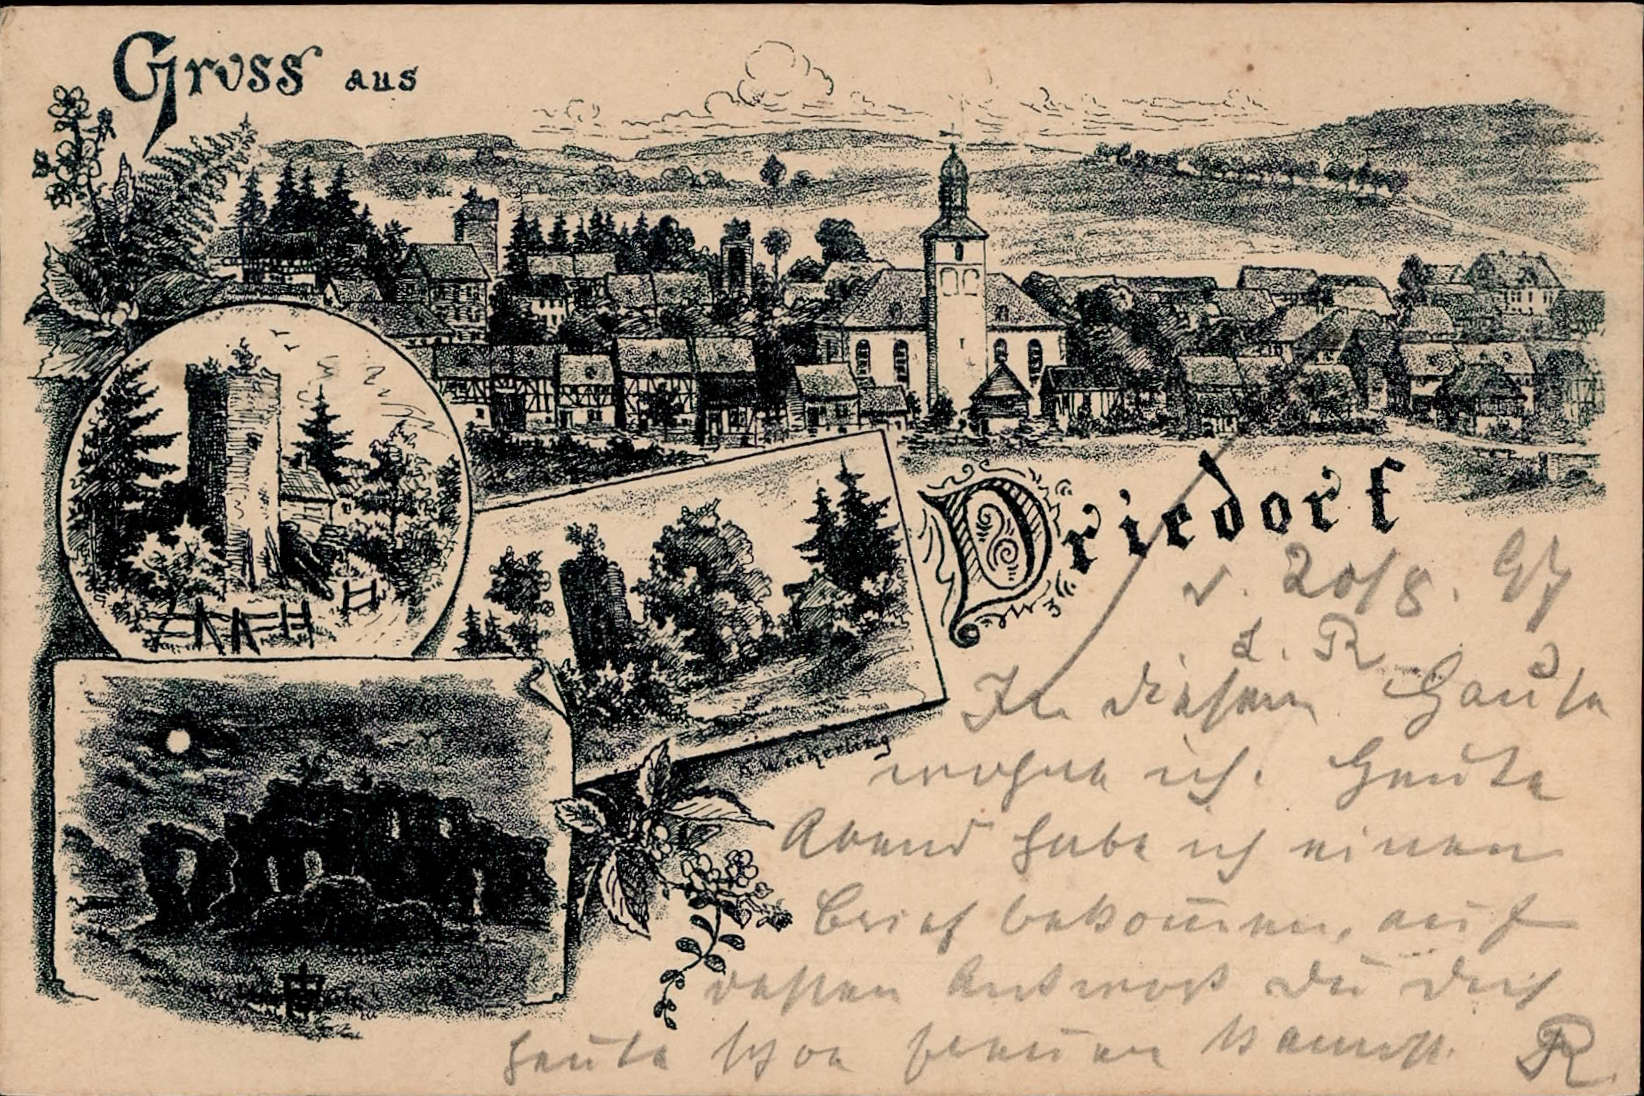 Gruss aus
Driedorf
d. 20/8. 97
L. R
In diesem Hause
wohne ich. Heute
Abend habe ich einen
Brief bekommen, auf
dessen Antwort Du Dich
heute schon freuen kannst.
R